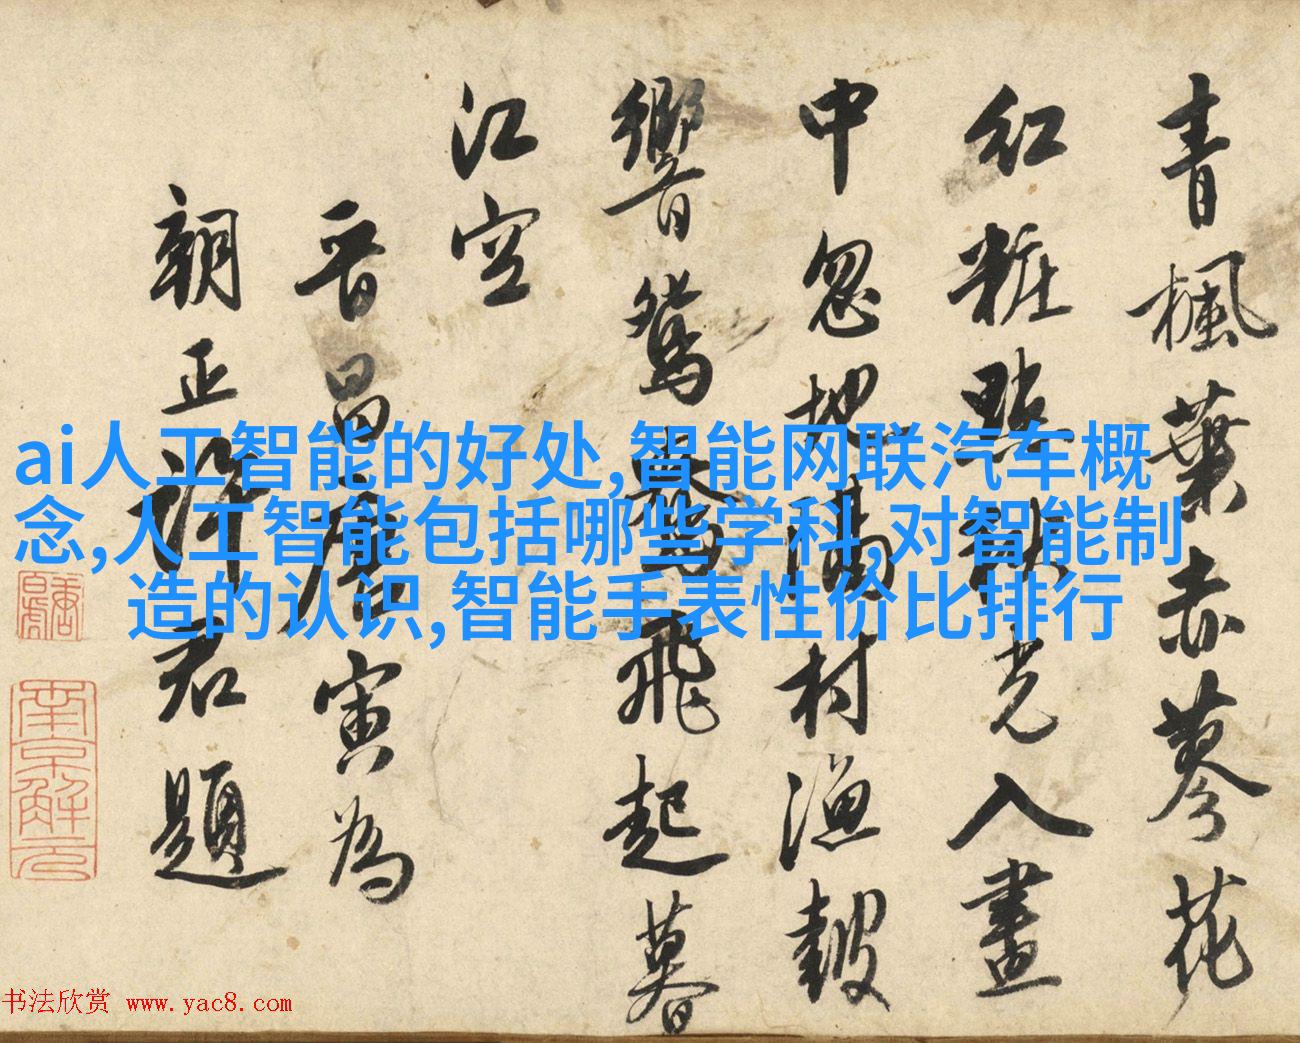 青楓葉赤蓼花
紅粧點秋光入畫
中忽地滿村漁鼓
響鴛鴦飛起暮
江空
晉昌唐寅為
朝正許君題
ai人工智能的好处,智能网联汽车概
念,人工智能包括哪些学科,对智能制
造的认识,智能手表性价比排行
南京解元
书法欣赏 www.yac8.com